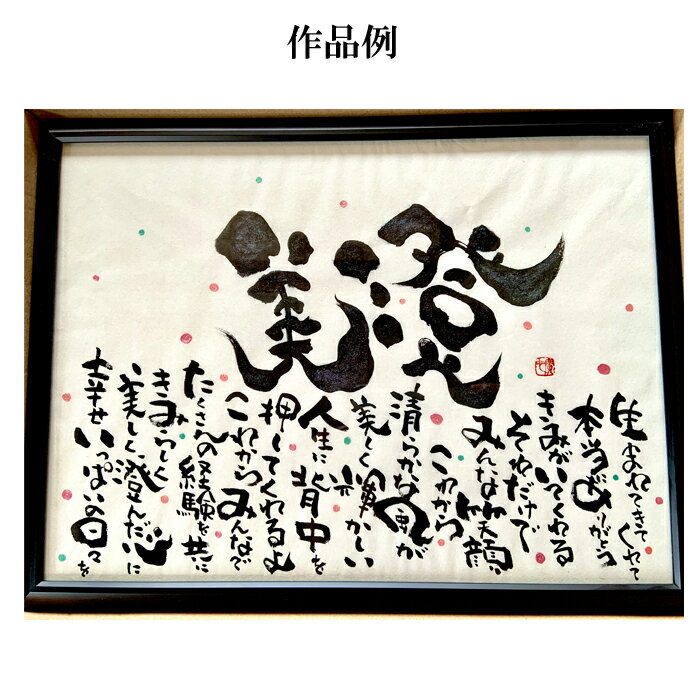 作品例
澄美
生まれてきてくれて
本当にありがとう
きみがいてくれる
それだけで
みんな笑顔
これから
清らかな風が
美しく輝かしい
人生に背中を
押してくれるよ
これからみんなで
たくさんの経験を共に
きみらしく
美しく澄んだ心に
幸せいっぱいの日々を